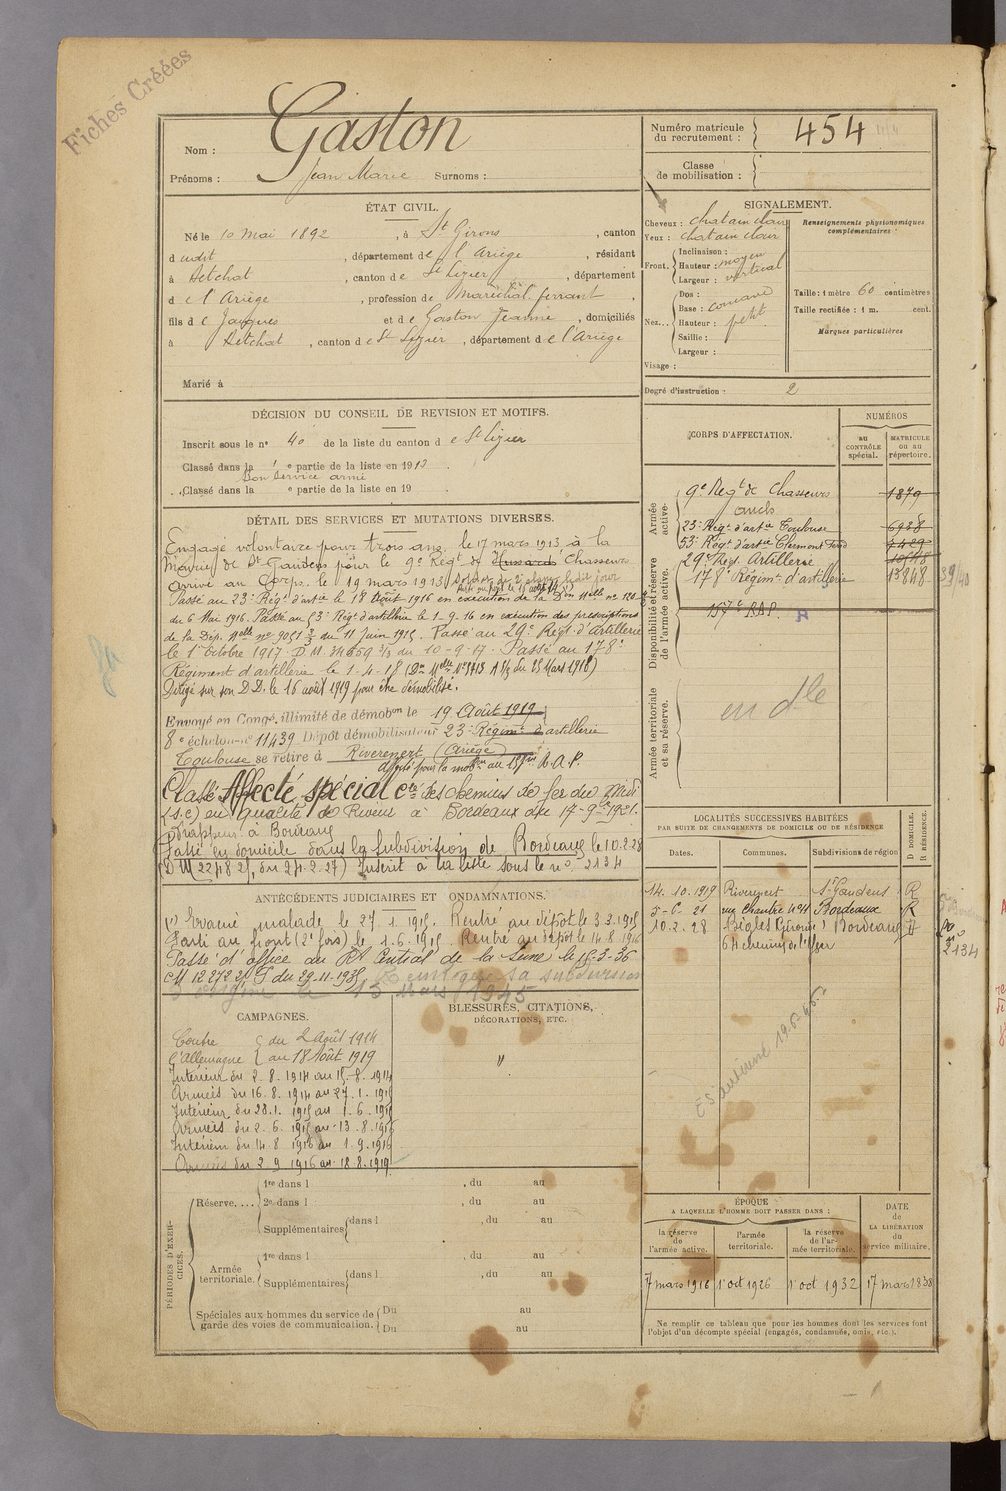 Fiches Créées
Nom : Gaston
Prénoms : Jean Marie Surnoms :
Numéro matricule du recrutement : 454
Classe de mobilisation :
ÉTAT CIVIL.
Né le 10 mai 1892, à St Girons, canton
dudit, département de l'Ariège, résidant
à Betchat, canton de St Lizier, département
de l'Ariège, profession de Maréchal ferrant,
fils de Jacques et de Gaston Jeanne, domiciliés
à Betchat, canton de St Lizier, département de l'Ariège
Marié à
SIGNALEMENT.
Cheveux : chatain clair
Yeux : chatain clair
Front. Inclinaison :
Hauteur : moyen
Largeur : vertical
Nez... Dos :
Base : concave
Hauteur : petit
Saillie :
Largeur :
Visage :
Renseignements physionomiques complémentaires :
Taille : 1 mètre 60 centimètres
Taille rectifiée : 1 m. cent.
Marques particulières
Degré d'instruction : 2
DÉCISION DU CONSEIL DE REVISION ET MOTIFS.
Inscrit sous le n° 40 de la liste du canton de St Lizier
Classé dans la 1e partie de la liste en 1913
Bon service armé
Classé dans la e partie de la liste en 19
CORPS D'AFFECTATION.
NUMÉROS
AU CONTRÔLE spécial.
MATRICULE ou au répertoire.
Armée active.
9e Regt de Chasseurs 1879
23e Regt d'artie Toulouse 6928
53e Regt d'artie Clermont Ferrd
29e Regt Artillerie
178e Régimt d'artillerie 13848
Disponibilité et réserve de l'armée active.
157e R.A.P.
Armée territoriale et sa réserve.
DÉTAIL DES SERVICES ET MUTATIONS DIVERSES.
Engagé volontaire pour trois ans, le 17 mars 1913 à la
Mairie de St Gaudens pour le 9e Regt de Hussards Chasseurs
Arrivé au Corps le 19 mars 1913, soldat de 2e classe ledit jour
Passé au 23e Régt d'artie le 18 Août 1916 en exécution de la Don Mlle n° 120
du 6 Mai 1916. Passé au 53e Régt d'artillerie le 1-9-16 en exécution des prescriptions
de la Dép. Mlle n° 9051 3/3 du 11 Juin 1915. Passé au 29e Regt d'Artillerie
le 1er Octobre 1917. D.M. 34659 3/3 du 10-9-17. Passé au 178e
Régiment d'artillerie le 1-4-18 (Don Mlle N° 7413 A 1/3 du 25 Mars 1918)
Dirigé sur son D.D. le 16 août 1919 pour être démobilisé.
Envoyé en Congé illimité de démobon le 19 Août 1919
8e échelon n° 11439 Dépôt démobilisateur 23e Régimt d'artillerie
Toulouse se retire à Riverenert (Ariège)
Affecté pour la mobon au 157me R.A.P.
Classé Affecté spécial Cie des chemins de fer du Midi
(S.C) en qualité de Riveur à Bordeaux du 17-9bre 1921.
Frappeur à Bordeaux
Passé en domicile dans la subdivision de Bordeaux le 10.2.28
(DM 2248 2/, du 24.2.27) Inscrit à la liste sous le n° 2134
ANTÉCÉDENTS JUDICIAIRES ET CONDAMNATIONS.
(1) Evacué malade le 27.1.1915. Rentré au dépôt le 3.3.1915
Parti au front (2e fois) le 1.6.1915. Rentré au dépôt le 14.8.1916
Passé d'office au Rt Central de la Seine le 15-3-36
CM 12272 2/ T du 29-11-1935
d'origine le 15 mars 1945
LOCALITÉS SUCCESSIVES HABITÉES
PAR SUITE DE CHANGEMENTS DE DOMICILE OU DE RÉSIDENCE
Dates. Communes. Subdivisions de région. D DOMICILE. R RÉSIDENCE.
14.10.1919 Riverenert St Gaudens R
5-6-21 rue Chantre n° 4 Bordeaux R
10.2.28 Bègles Gironde Bordeaux D
2134
CAMPAGNES.
Contre l'Allemagne du 2 Août 1914 au 18 Août 1919
Intérieur du 2.8.1914 au 15.8.1914
Armées du 16.8.1914 au 27.1.1915
Intérieur du 28.1.1915 au 1.6.1915
Armées du 2.6.1915 au 13.8.1916
Intérieur du 14.8.1916 au 1.9.1916
Armées du 2.9.1916 au 18.8.1919
BLESSURES, CITATIONS, DÉCORATIONS, ETC.
"
PÉRIODES D'EXERCICES.
Réserve.... 1re dans l , du au
2e dans l , du au
Supplémentaires dans l , du au
Armée territoriale. 1re dans l , du au
Supplémentaires dans l , du au
Spéciales aux hommes du service de garde des voies de communication. Du au
Du au
ÉPOQUE
A LAQUELLE L'HOMME DOIT PASSER DANS :
la réserve de l'armée active. l'armée territoriale. la réserve de l'armée territoriale.
DATE de LA LIBÉRATION du service militaire.
17 mars 1916 1er oct 1926 1er oct 1932 17 mars 1938
Ne remplir ce tableau que pour les hommes dont les services font
l'objet d'un décompte spécial (engagés, condamnés, omis, etc.).